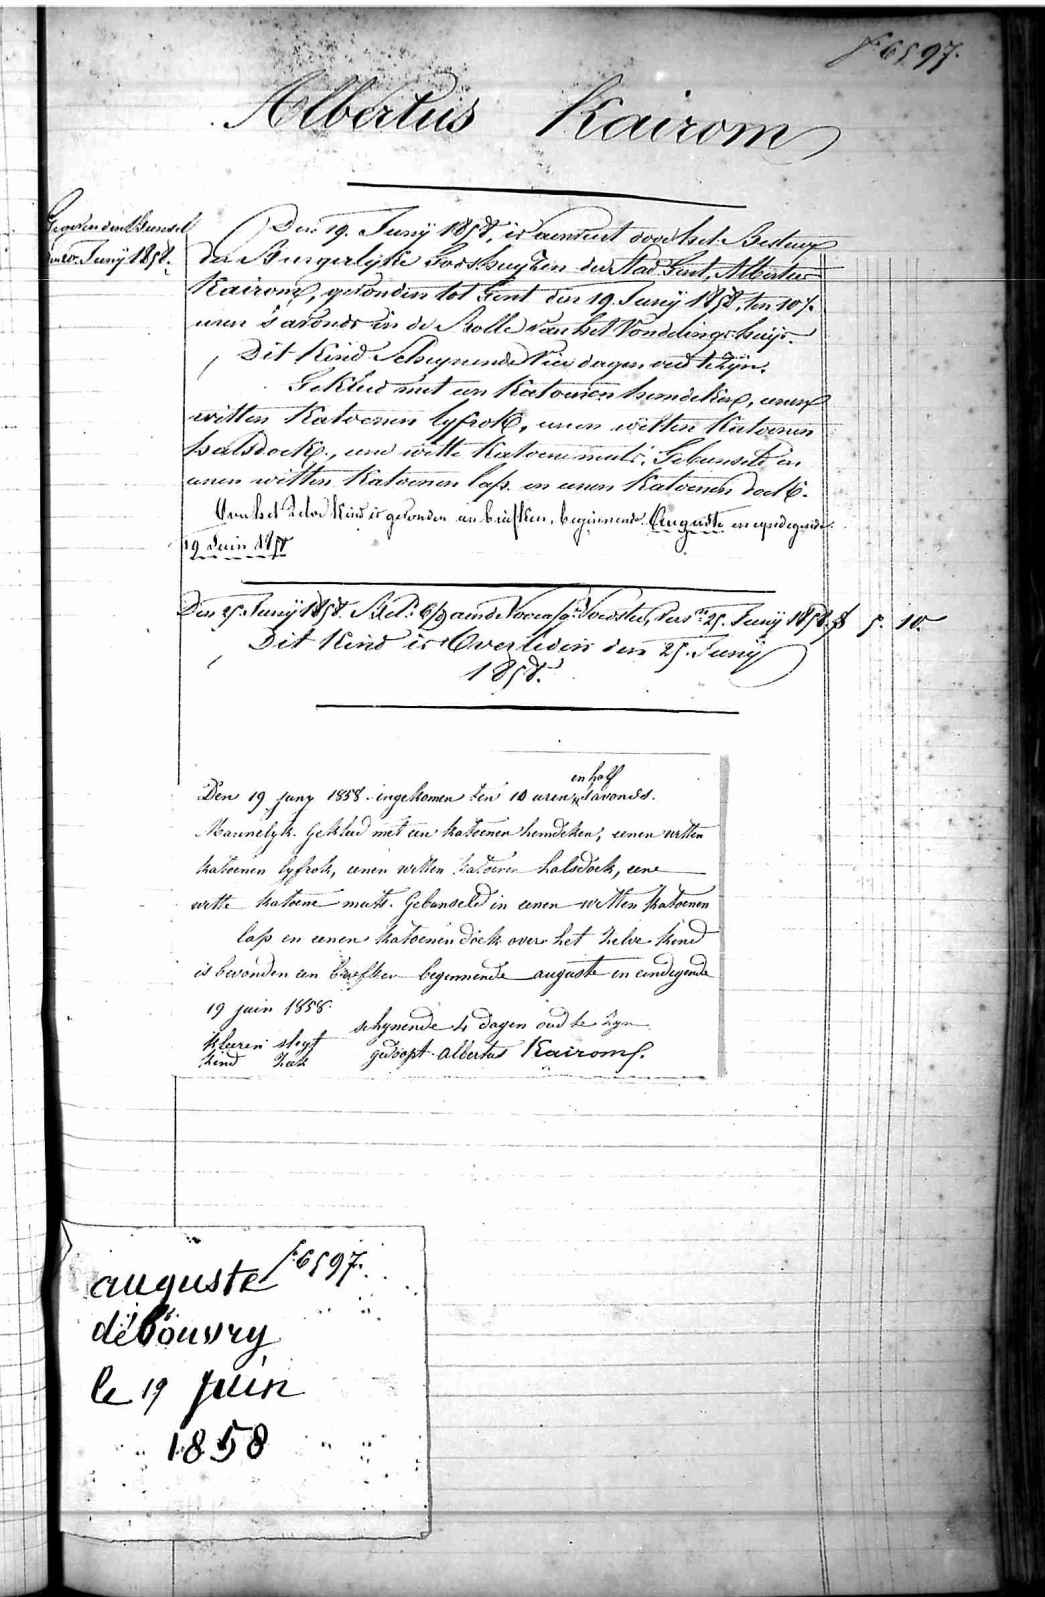 f. 6597.
Albertus Kairom
Gegeven den Bunsel
den 20 Juny 1858.
Den 19. Juny 1858, is aenveert door het Bestuer
der Burgerlyke Godshuyzen der Stad Gent, Albertus
Kairom, gevonden tot Gent den 19 Juny 1858, ten 10½
uren 's avonds in de Rolle van het Vondelingshuys.
Dit Kind Schynende Vier dagen oud te zyn.
Gekleed met een Katoenen hemdeken, eenen
witten Katoenen lyfrok, eenen witten Katoenen
halsdoek, eene witte Katoene muts; Gebunseld in
eenen witten Katoenen lap en eenen Katoenen doek.
Van het zelve Kind is gevonden een briefken, beginnende Auguste en eyndigende
19 Juin 1858
Den 25. Juny 1858. Voedster, Pens. 25. Juny 1858. 5. 10.
Dit Kind is Overleden den 25. Juny
1858.
en half
Den 19 juny 1858 ingekomen ten 10 uren savonds.
Mannelyk. Gekleed met een katoenen hemdeken, eenen witten
katoenen lyfrok, eenen witten katoenen halsdoek, eene
witte katoene muts. Gebunseld in eenen witten katoenen
lap en eenen katoenen doek over het zelve kind
is bevonden een briefken beginnende auguste en eindegende
19 juin 1858.
schynende 4 dagen oud te zyn
kleeren slegt gedoopt Albertus Kairom.
kind ziek
f. 6597.
auguste
débouvry
le 19 juin
1858